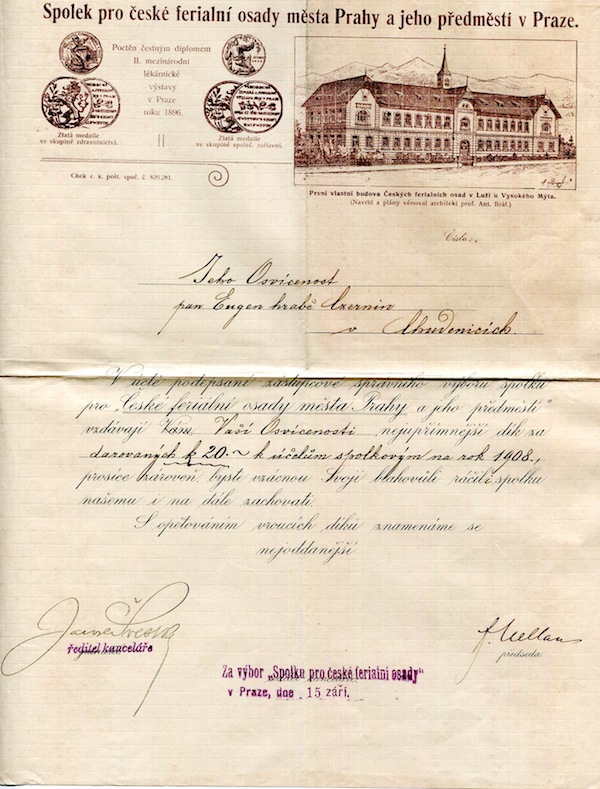 Spolek pro české ferialní osady města Prahy a jeho předměstí v Praze.
Poctěn čestným diplomem
II. mezinárodní
lékárnické
výstavy
v Praze
roku 1896.
Zlatá medaile
ve skupině zdravotnictví.
Zlatá medaile
ve skupině společ. zařízení.
Chek c. k. pošt. spoř. č. 820,281.
První vlastní budova Českých ferialních osad v Luži u Vysokého Mýta.
(Navrhl a plány věnoval architekt prof. Ant. Brář.)
Číslo:
Jeho Osvícenost
pan Eugen hrabě Czernin
v Chudenicích.
V úctě podepsaní zástupcové správního výboru spolku
pro „České feriální osady města Prahy a jeho předměstí"
vzdávají Vám, Vaší Osvícenosti nejupřímnější dík za
darovaných K 20.~ k účelům spolkovým na rok 1908.,
prosíce zároveň, byste vzácnou Svoji blahovůli ráčili spolku
našemu i na dále zachovati.
S opětováním vroucích díků znamenáme se
nejoddanější
ředitel kanceláře
předseda.
Za výbor „Spolku pro české ferialní osady"
v Praze, dne 15 září.